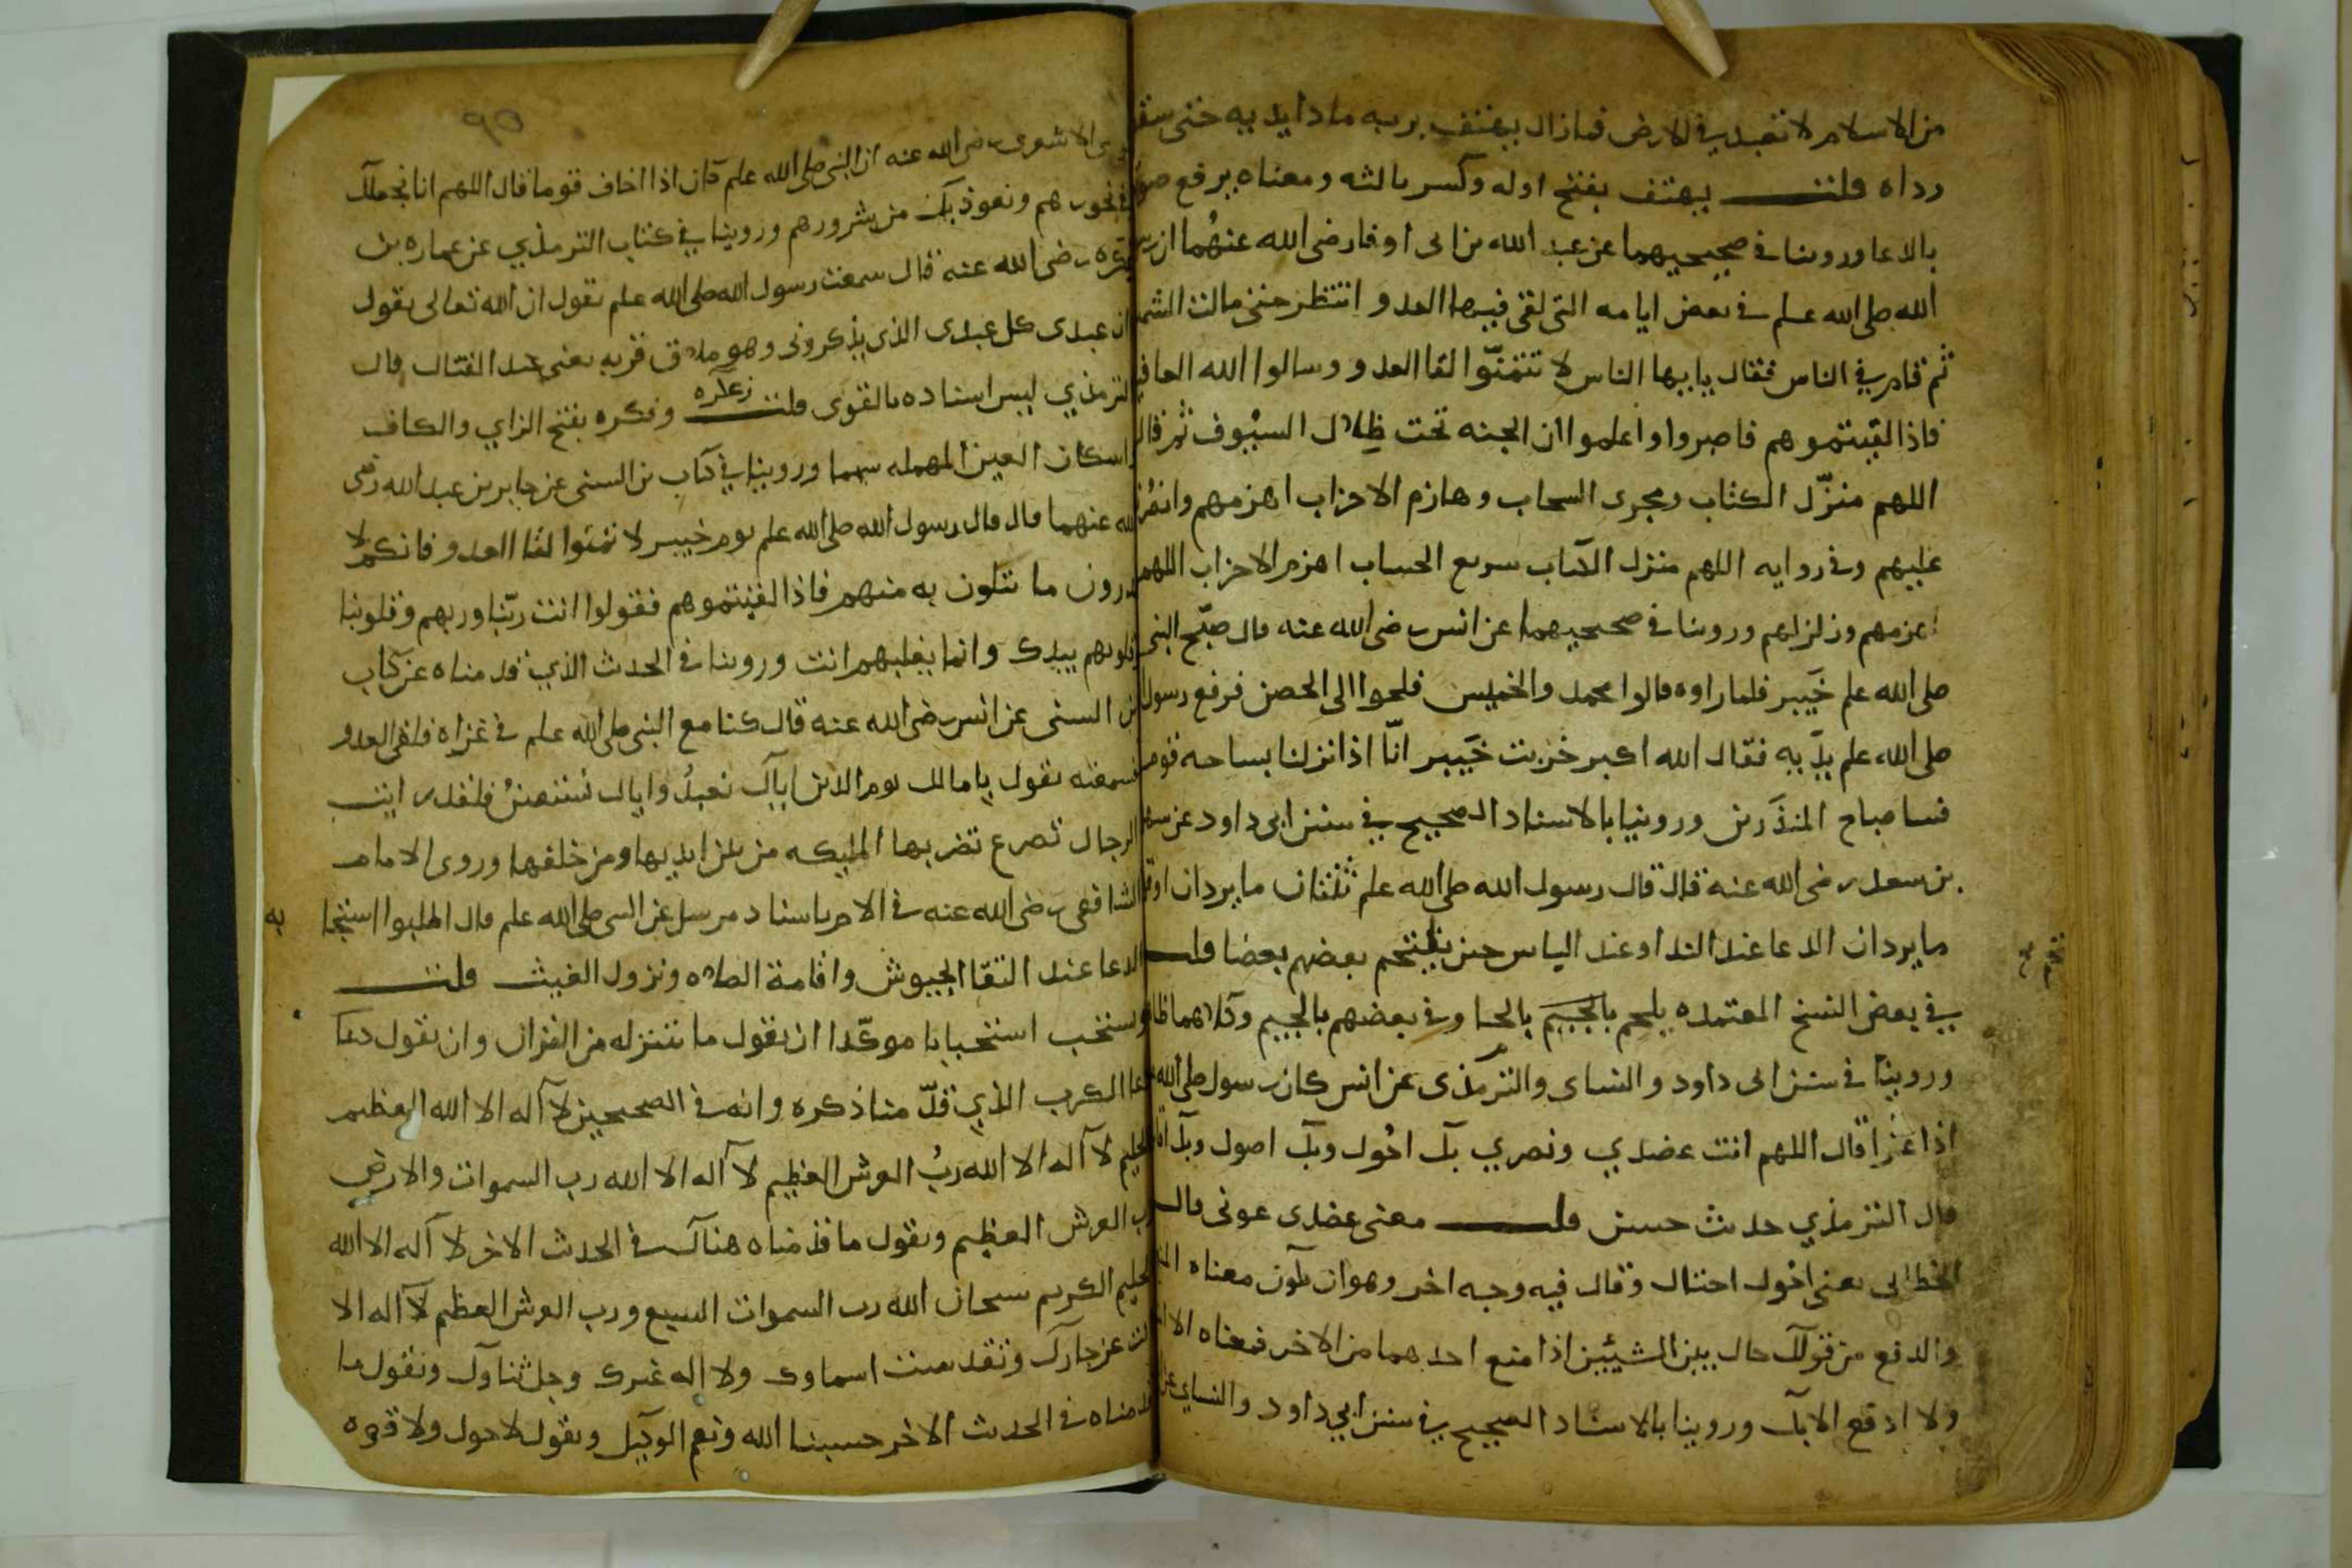 من الاسلام لا تعبد في الارض فما زال يهتف بربه مادا يديه حتى سقط
رداه قلت يهتف بفتح اوله وكسر ثالثه ومعناه يرفع صوته
بالدعا وروينا في صحيحيهما عن عبد الله بن ابى اوفا رضى الله عنهُما ان رسول
الله صلى الله علم في بعض ايامه التى لقى فيها العدو انتظر حتى مالت الشمس
ثم قام في الناس فقال يا يها الناس لا تتمنّوا لقا العدو وسالوا الله العافيه
فاذا لقيتموهم فاصبروا واعلموا ان الجنه تحت ظِلال السيُوف ثم قال
اللهم منزّل الكتاب ومجرى السحاب وهازم الاحزاب اهزمهم وانصُرنا
عليهم وفي روايه اللهم منزل الكتاب سريع الحساب اهزم الاحزاب اللهم
اهزمهم وزلزلهم وروينا في صحيحيهما عن انس رضى الله عنه قال صبّح النبى
صلى الله علم خَيبر فلما راوه قالوا محمد والخميس فلجوا الى الحصن فرفع رسول الله
صلى الله علم يدَيه فقال الله اكبر خربت خَيبر انّا اذا نزلنا بساحه قوم
فسا صباح المنذَرين وروينا بالاسناد الصحيح في سنن ابى داود عن سهل
بن سعد رضى الله عنه قال قال رسول الله صلى الله علم ثنتان ما يردان او قل
ما يردان الدعا عند الندا وعند الباس حين يلتحم بعضهم بعضا قلت
في بعض النسخ المعتمده يلحم بالحا وفي بعضهم بالجيم وكلاهما ظاهر
وروينا في سنن ابى داود والنساى والترمذى عن انس كان رسول صلى الله علم
اذا غزا قال اللهم انت عضدي ونصري بك احُول وبك اصول وبك اقاتل
قال الترمذي حديث حسن قلت معنى عضدى عونى قال
الخطابى معنى احُول احتال وقال فيه وجه اخر وهو ان يكون معناه المنع
والدفع من قولك حال بين الشيئين اذا منع احدهما من الاخر فمعناه لا امنع
ولا ادفع الا بك وروينا بالاسناد الصحيح في سنن ابي داود والنساي عن
موسى الاشعرى رضى الله عنه ان النبى صلى الله علم كان اذا اخاف قوما قال اللهم انا نجعلك
في نحورهم ونعوذ بك من شرورهم وروينا في كتاب الترمذي عن عماره بن
زعكره رضى الله عنه قال سمعت رسول الله صلى الله علم يقول ان الله تعالى يقول
ان عبدى كل عبدى الذى يذكرونى وهو ملاق قرنه يعنى عند القتال قال
الترمذي ليس اسناده بالقوى قلت زعكره وزعكره بفتح الزاي والكاف
واسكان العين المهمله بينهما وروينا في كتاب بن السنى عن جابر بن عبد الله رضى
الله عنهما قال قال رسول الله صلى الله علم يوم خيبر لا تمنوا لقا العدو فانكم لا
تدرون ما تبتلون به منهم فاذا لقيتموهم فقولوا انت ربّنا وربهم وقلوبنا
وقلوبهم بيدك وانما يغلبهم انت وروينا في الحدث الذي قدمناه عن كتاب
بن السنى عن انس رضى الله عنه قال كنا مع النبى صلى الله علم في غزاه فلقى العدو
فسمعته يقول يا مالك يوم الدين اياك نعبدُ واياك نستعينُ فلقد رايت
الرجال تصرع تضربها المليكه من بين ايديها ومن خلفها وروى الامام
الشافعى رضى الله عنه في الام باسناد مرسل عن النبى صلى الله علم قال اطلبوا استجا به
الدعا عند التقا الجيوش واقامة الصلاه ونزول الغيث قلت
ويستحب استحبابا موكّدا ان يقول ما تتنزله من القران وان يقول دعا
دعا الكرب الذي قدّ منا ذكره وانه في الصحيحين لا اله الا الله العظيم
الحليم لا اله الا الله ربُ العرش العظيم لا اله الا الله رب السموات والارض
رب العرش العظيم ويقول ما قدمناه هناك في الحدث الاخر لا اله الا الله
الحليم الكريم سبحان الله رب السموات السبع ورب العرش العظم لا اله الا
انت عز جارك وتقدست اسماوك ولا اله غيرك وجل ثناوك ونقول ما
قدمناه في الحدث الاخر حسبنا الله ونعم الوكيل ويقول لا حول ولا قوه